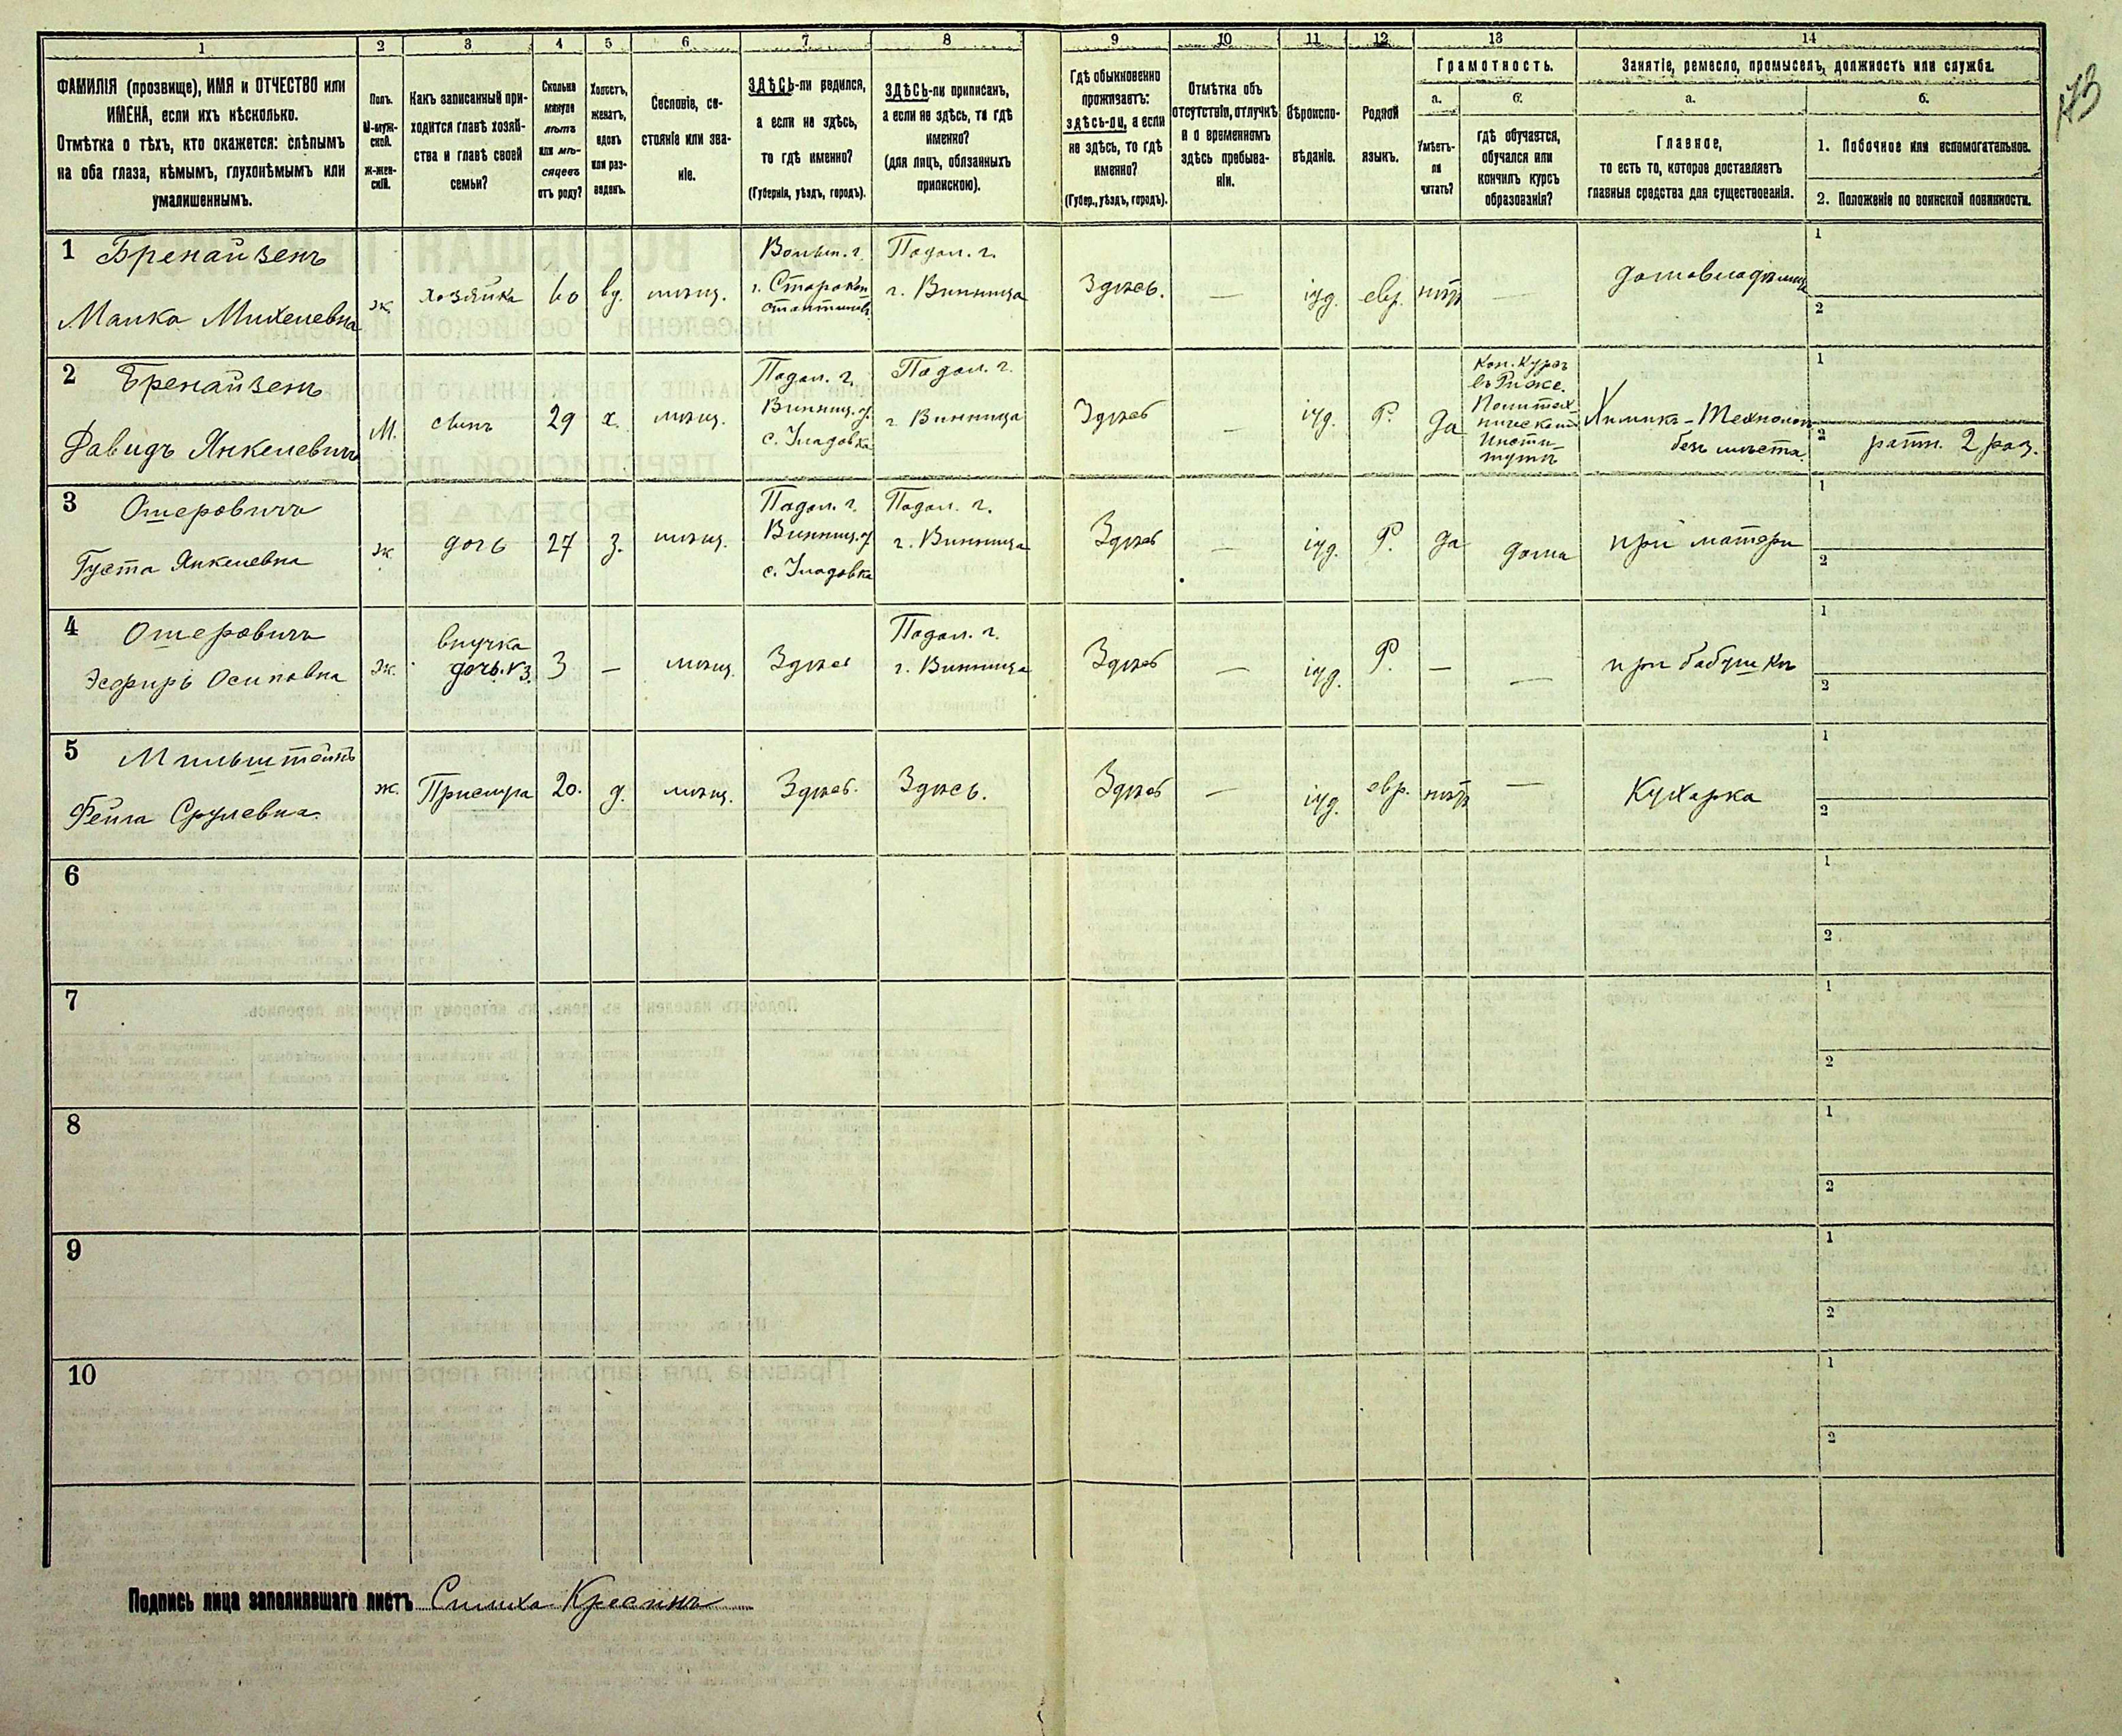 1 2 3 4 5 6 7 8 9 10 11 12 13 14
ФАМИЛІЯ (прозвище), ИМЯ и ОТЧЕСТВО или
ИМЕНА, если ихъ нѣсколько.
Отмѣтка о тѣхъ, кто окажется: слѣпымъ
на оба глаза, нѣмымъ, глухонѣмымъ или
умалишеннымъ.
Полъ.
М-муж-
ской.
Ж-жен-
скій.
Какъ записанный при-
ходится главѣ хозяй-
ства и главѣ своей
семьи?
Сколько
минуло
лѣтъ
или мѣ-
сяцевъ
отъ роду?
Холостъ,
женатъ,
вдовъ
или раз-
веденъ.
Сословіе, со-
стояніе или зва-
ніе.
ЗДѢСЬ-ли родился,
а если не здѣсь,
то гдѣ именно?
(Губернія, уѣздъ, городъ).
ЗДѢСЬ-ли приписанъ,
а если не здѣсь, то гдѣ
именно?
(для лицъ, обязанныхъ
припиской).
Гдѣ обыкновенно
проживаетъ:
здѣсь-ли, а если
не здѣсь, то гдѣ
именно?
(Губер., уѣздъ, городъ).
Отмѣтка объ
отсутствіи, отлучкѣ
и о временномъ
здѣсь пребыва-
ніи.
Вѣроиспо-
вѣданіе.
Родной
языкъ.
Грамотность.
а.
Умѣетъ-
ли
читать?
б.
гдѣ обучается,
обучался или
кончилъ курсъ
образованія?
Занятіе, ремесло, промыселъ, должность или служба.
а.
Главное,
то есть то, которое доставляетъ
главныя средства для существованія.
б.
1. Побочное или вспомогательное.
2. Положеніе по воинской повинности.
1 Бренайзенъ
Малка Михелевна
ж
хозяйка
60
вд.
мѣщ.
Волын. г.
г. Старокон
стантинов
Подол. г.
г. Винница
Здѣсь.
—
іуд.
евр.
нѣтъ
—
домовладѣлица
1
2
2 Бренайзенъ
Давидъ Янкелевичъ
М.
сынъ
29
х.
мѣщ.
Подол. г.
Винниц. у.
с. Уладовка
Подол. г.
г. Винница
Здѣсь
—
іуд.
Р.
да
Кон. Курсъ
въ Рижс.
Политех-
ническом
Инсти-
тутѣ
Химикъ-Технологъ
безъ мѣста.
1
2 ратн. 2 раз.
3 Ошеровичъ
Густа Янкелевна
ж
дочь
27
з.
мѣщ.
Подол. г.
Винниц. у
с. Уладовка
Подол. г.
г. Винница
Здѣсь
—
іуд.
Р.
да
дома
при матери
1
2
4 Ошеровичъ
Эсфирь Осиповна
ж.
внучка
дочь. № 3.
3
—
мѣщ.
Здѣсь
Подол. г.
г. Винница
Здѣсь
—
іуд.
Р.
—
—
при бабушкѣ
1
2
5 Мильштейнъ
Фейга Срулевна.
ж.
Прислуга
20.
д.
мѣщ.
Здѣсь.
Здѣсь.
Здѣсь
—
іуд.
евр.
нѣтъ
—
Кухарка
1
2
6
1
2
7
1
2
8
1
2
9
1
2
10
1
2
Подпись лица заполнившаго листъ